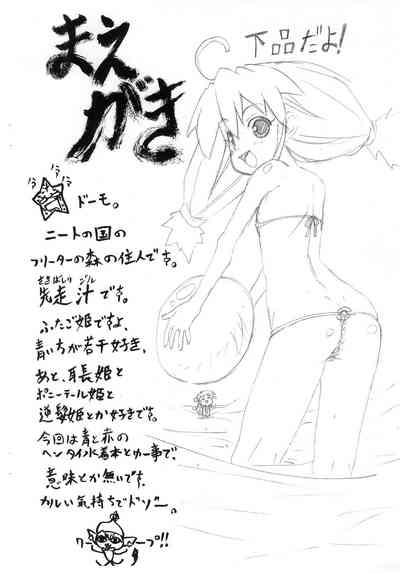 まえ
がき
下品だよ!
ドーモ。
ニートの国の
フリーターの森の住人です。
さきばしり ジル
先走 汁です。
ふたご姫ですよ、
青いちが若干好き、
あと、耳長姫と
ポニーテール姫と
逆髪姫とか好きです。
今回は青と赤の
ヘンタイ水着本とカー事で、
意味とか無いです。
カルい気持ちでドゾー。
ワー
プ!!